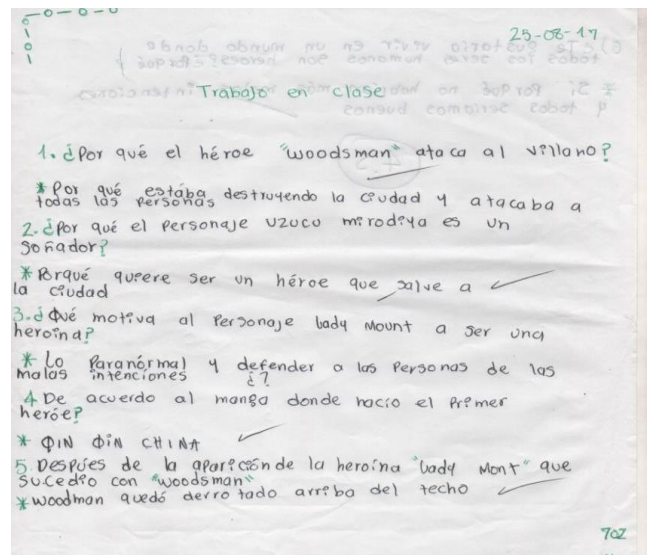 25-08-17
Trabajo en clase
1. ¿Por qué el héroe "woodsman" ataca al villano?
* Por qué estába destruyendo la ciudad y atacaba a
todas las personas
2. ¿Por qué el Personaje uzuco mirodiya es un
soñador?
* Porqué quiere ser un héroe que salve a
la ciudad
3. ¿Qué motiva al Personaje lady Mount a ser una
heroína?
* Lo Paranórmal y defender a las Personas de las
malas intenciones ¿?
4 De acuerdo al manga donde nacio el Primer
heróe?
* QIN QIN CHINA
5. Despúes de la aparición de la heroína "lady Mont" que
sucedio con "woodsman"
* woodman quedó derrotado arriba del techo
702